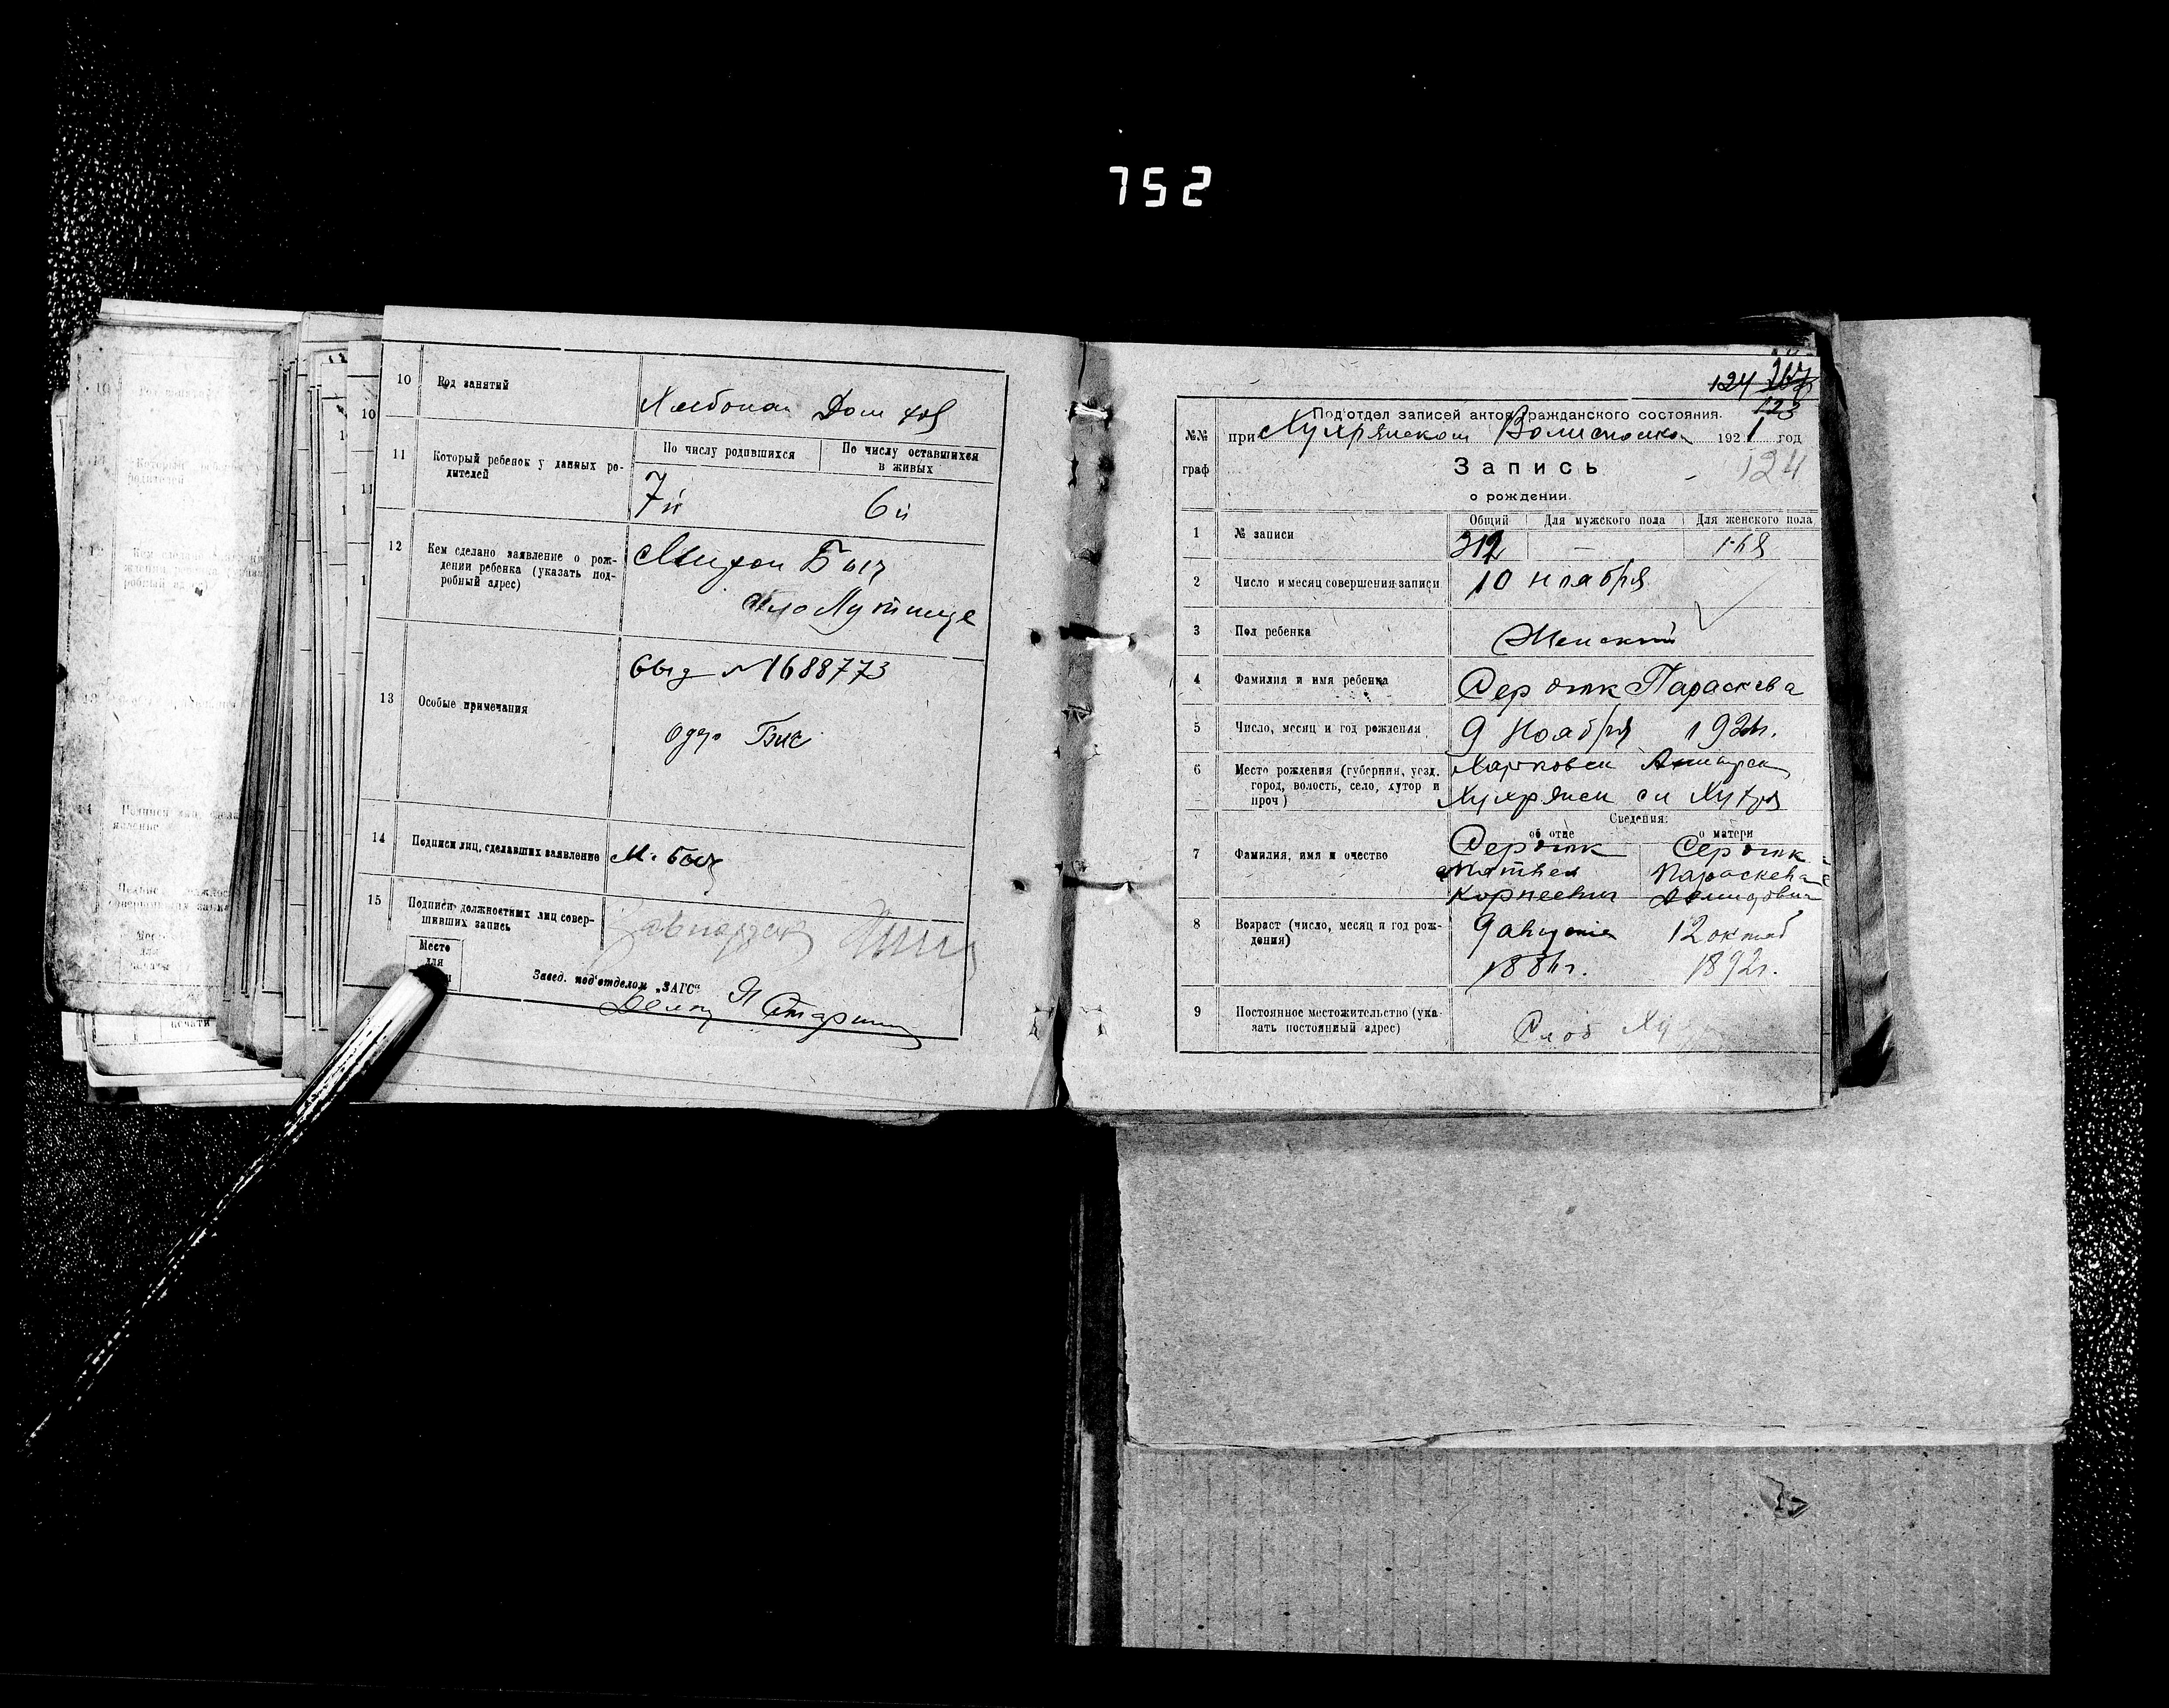 752
10 Род занятий
Хлебопаш Дом хоз
11 Который ребенок у данных ро-
дителей
По числу родившихся
По числу оставшихся
в живых
7й 6й
12 Кем сделано заявление о рож-
дении ребенка (указать под-
робный адрес)
Мирон Бич
село Лутище
13 Особые примечания
выд №1688773
14 Подписи лиц, сделавших заявление
М. Бич
15 Подписи должностных лиц совер-
шивших запись
Место
для
Завед. под'отделом „ЗАГС“
124 267
123
Под'отдел записей актов гражданского состояния.
№№
граф
при Хухрянском Волисполком 1921 год
Запись
124
о рождении.
1 № записи
Общий Для мужского пола Для женского пола
312 — 168
2 Число и месяц совершения записи
10 ноября
3 Пол ребенка
Женский
4 Фамилия и имя ребенка
Сердюк Параскева
5 Число, месяц и год рождения
9 Ноября 1921г.
6 Место рождения (губерния, уезд,
город, волость, село, хутор и
проч)
Харковск Ахтырск
Хухрянск сл Хухря
Сведения:
об отце о матери
7 Фамилия, имя и очество
Сердюк Сердюк
Матвей Параскева
Корнеевич
8 Возраст (число, месяц и год рож-
дения)
9 августа 12 октяб
1886г. 1892г.
9 Постоянное местожительство (ука-
зать постоянный адрес)
Слоб